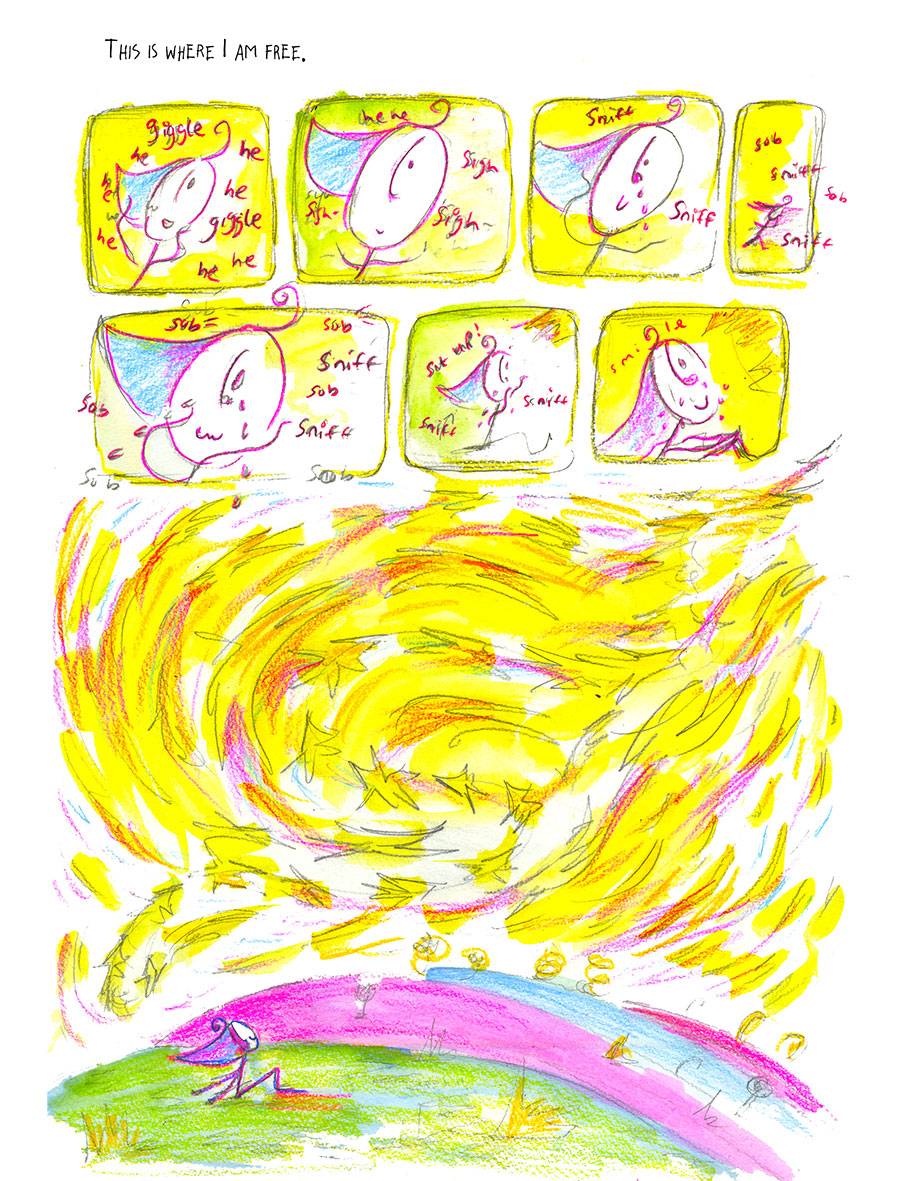 THIS IS WHERE I AM FREE.
giggle
he
he
he
he
giggle
he
he
he
hehe
Sigh
Sigh-
Sigh-
Sniff
Sniff
sob
sniff
sob
sniff
sob
sob
sob
Sniff
sob
sob
Sniff
sob
Sniff
Sniff
smile